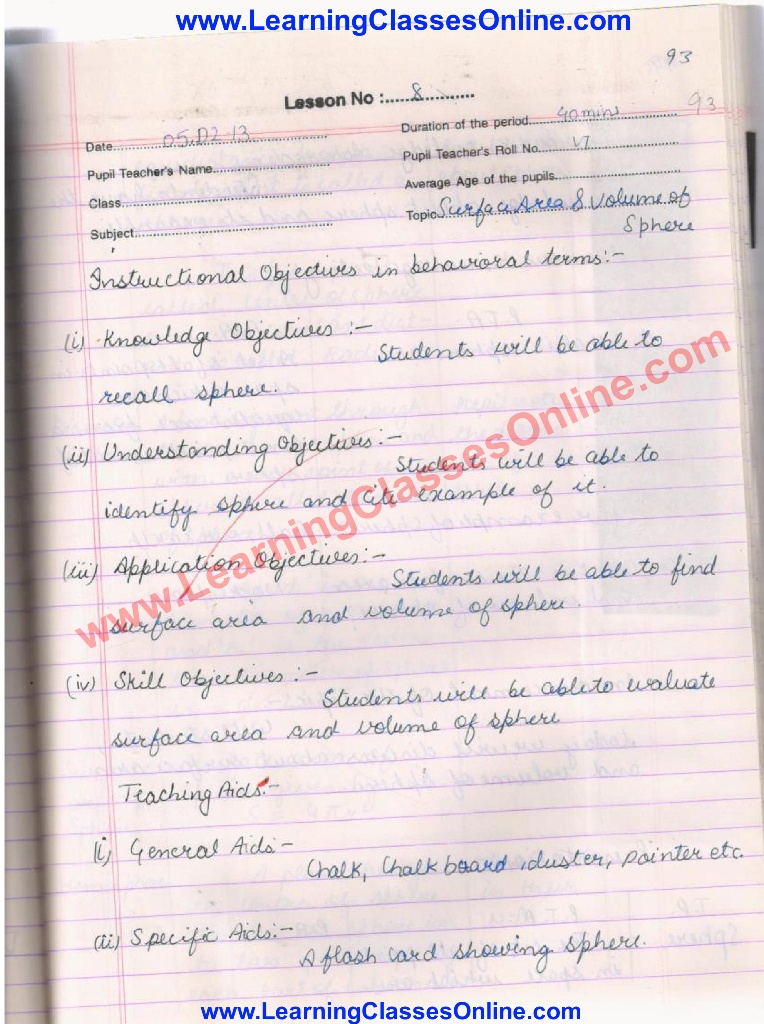 www.LearningClassesOnline.com
93
Lesson No :....8............
93
Date....05.02.13....
Duration of the period....40 mins....
Pupil Teacher's Name....
Pupil Teacher's Roll No....
Class....
Average Age of the pupils....
Subject....
Topic....Surface Area & Volume of
Sphere
Instructional Objectives in behavioral terms:-
(i) Knowledge Objectives :-
Students will be able to
recall sphere.
(ii) Understanding Objectives:-
Students will be able to
identify sphere and cite example of it.
(iii) Application Objectives:-
Students will be able to find
surface area and volume of sphere.
(iv) Skill Objectives :-
Students will be able to evaluate
surface area and volume of sphere
Teaching Aids:-
(i) General Aids:-
Chalk, Chalk board, duster, pointer etc.
(ii) Specific Aids:-
A flash card showing sphere.
www.LearningClassesOnline.com
www.LearningClassesOnline.com